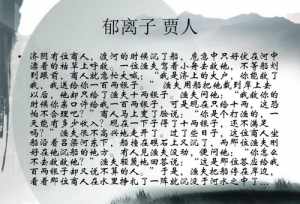 郁离子 贾人
济阴有位商人,渡河的时候沉了船,危急中只好伏在河中
漂着的枯草上呼救。一位渔夫驾着小舟去救他,不等船划
到跟前,商人就急忙大喊:“我是济上的大户,你能救了
我,我送给你一百两银子。”渔夫用船把他载到岸上去
以后,他却只给了渔夫十两银子。渔夫问他:“我救你的
时候你亲口许给我一百两银子,可是现在只给十两,这恐
怕不合理吧?”商人马上变了脸说:“你是个打渔的,一
天能有多少收入?现在一下子得了十两银子,还不满足
吗?”渔夫很不高兴地走开了。过了些日子,这位商人坐
船沿着吕梁河东下,船撞在礁石上又沉了,而那位渔夫刚
好在他沉船的地方。有人见渔夫没动,便问他:“你怎么
不去救救他?”渔夫轻蔑地回答说:“这是那位答应给我
百两银子却又说不算的人。”于是,渔夫把船停在岸边,
看着那位商人在水里挣扎了一阵就沉没于河水之中了。